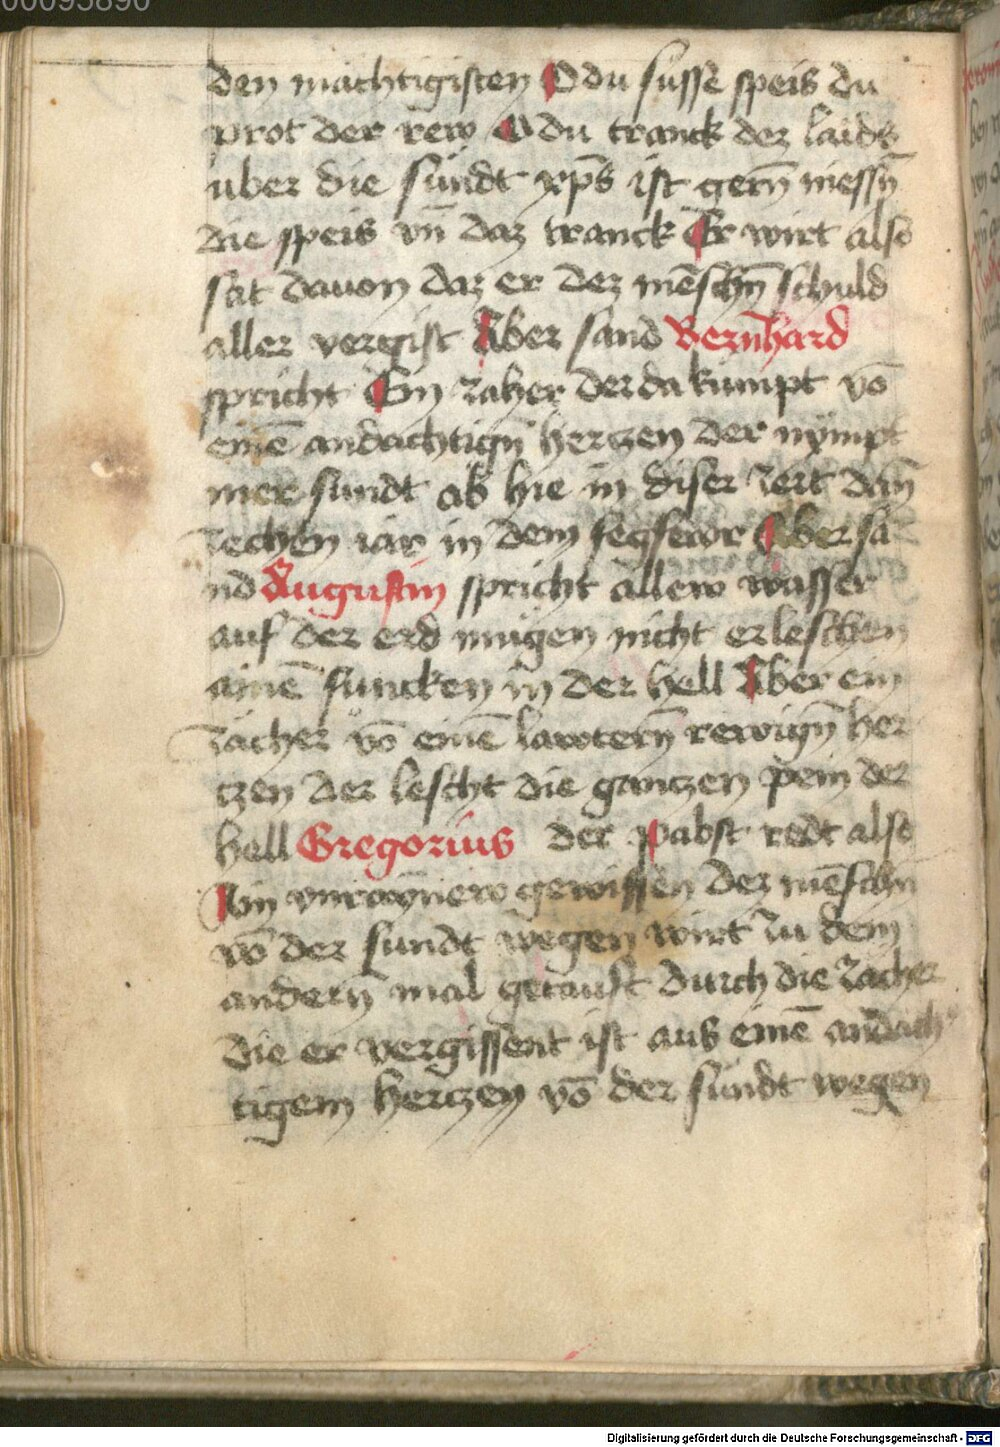 00095890
den mächtigisten O du susse speis du
prot der rew O du tranck dez laids
über die sündt xp̄s ist gern̄ niessn̄
die speis vn̄ daz tranck Er wirt also
sat dauon daz er dez mēschn̄ schuld
aller vergist Aber sand Bernhard
spricht Ein zaher der da kumpt vō
einē andächtign̄ hertzen der nympt
mer sündt ab hie in diser zeit dan̄
zechen iar in dem fegfewr Aber sa
nd Augustin spricht allew wasser
auf der erd mügen nicht erleschen
ainē funcken in der hell Aber ein
zächer vō einē lawtern̄ rewign̄ her
tzen der lescht die gantzen pein der
hell Gregorius der pabst redt also
Ein gewissen dez mēschn
vō der sundt wegen wirt zu dem
andern̄ mal getauft durch die zächer
die er vergissent ist aus einē andäch
tigem hertzen vō der sündt wegen
Digitalisierung gefördert durch die Deutsche Forschungsgemeinschaft - DFG